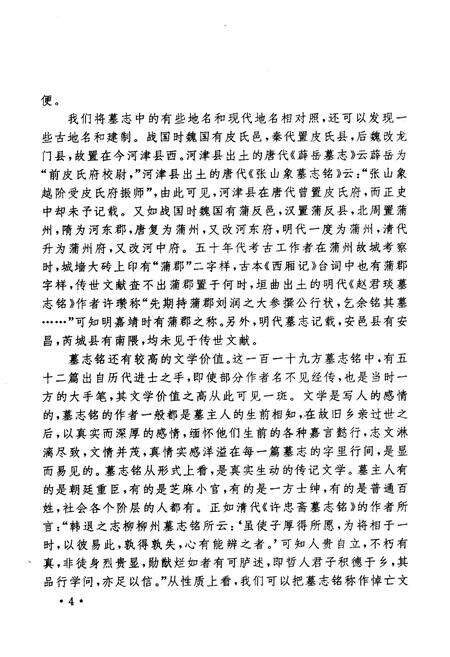 便。
我们将墓志中的有些地名和现代地名相对照,还可以发现一
些古地名和建制。战国时魏国有皮氏邑,秦代置皮氏县,后魏改龙
门县,故置在今河津县西。河津县出土的唐代《薛岳墓志》云薛岳为
“前皮氏府校尉,”河津县出土的唐代《张山象墓志铭》云:“张山象
越阶受皮氏府振师”,由此可见,河津县在唐代曾置皮氏府,而正史
中却未予记载。又如战国时魏国有蒲反邑,汉置蒲反县,北周置蒲
州,隋为河东郡,唐复为蒲州,又改河东府,明代一度为蒲州,清代
升为蒲州府,又改河中府。五十年代考古工作者在蒲州故城考察
时,城墙大砖上印有“蒲郡”二字样,古本《西厢记》台词中也有蒲郡
字样,传世文献查不出蒲郡置于何时,垣曲出土的明代《赵君琰墓
志铭》作者许瓒称“先期持蒲郡刘润之大参撰公行状,乞余铭其墓
……”可知明嘉靖时有蒲郡之称。另外,明代墓志记载,安邑县有安
昌,芮城县有南隈,均未见于传世文献。
墓志铭还有较高的文学价值。这一百一十九方墓志铭中,有五
十二篇出自历代进士之手,即使部分作者名不见经传,也是当时一
方的大手笔,其文学价值之高从此可见一斑。文学是写人的感情
的,墓志铭的作者一般都是墓主人的生前相知,在故旧乡亲过世之
后,以真实而深厚的感情,缅怀他们生前的各种嘉言懿行,志文淋
漓尽致,文情并茂,真情实感洋溢在每一篇墓志的字里行间,是显
而易见的。墓志铭从形式上看,是真实生动的传记文学。墓主人有
的是朝廷重臣,有的是芝麻小官,有的是一方士绅,有的是普通百
姓,社会各个阶层的人都有。正如清代《许忠斋墓志铭》的作者所
言:“韩退之志柳柳州墓志铭所云:‘虽使子厚得所愿,为将相于一
时,以彼易此,孰得孰失,心有能辨之者。’可知人贵自立,不朽有
真,非徒身烈贵显,勋猷烂如者有可胪述,即哲人君子积德于乡,其
品行学问,亦足以信。”从性质上看,我们可以把墓志铭称作悼亡文
·4·